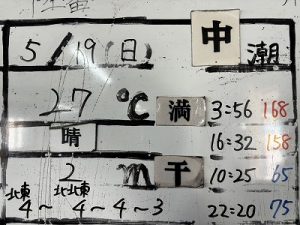 5/19(日) 中潮
27℃ 満 3=56 168
晴 16=32 158
2m 干 10=25 65
北東 北北東 22=20 75
4～4～4～3